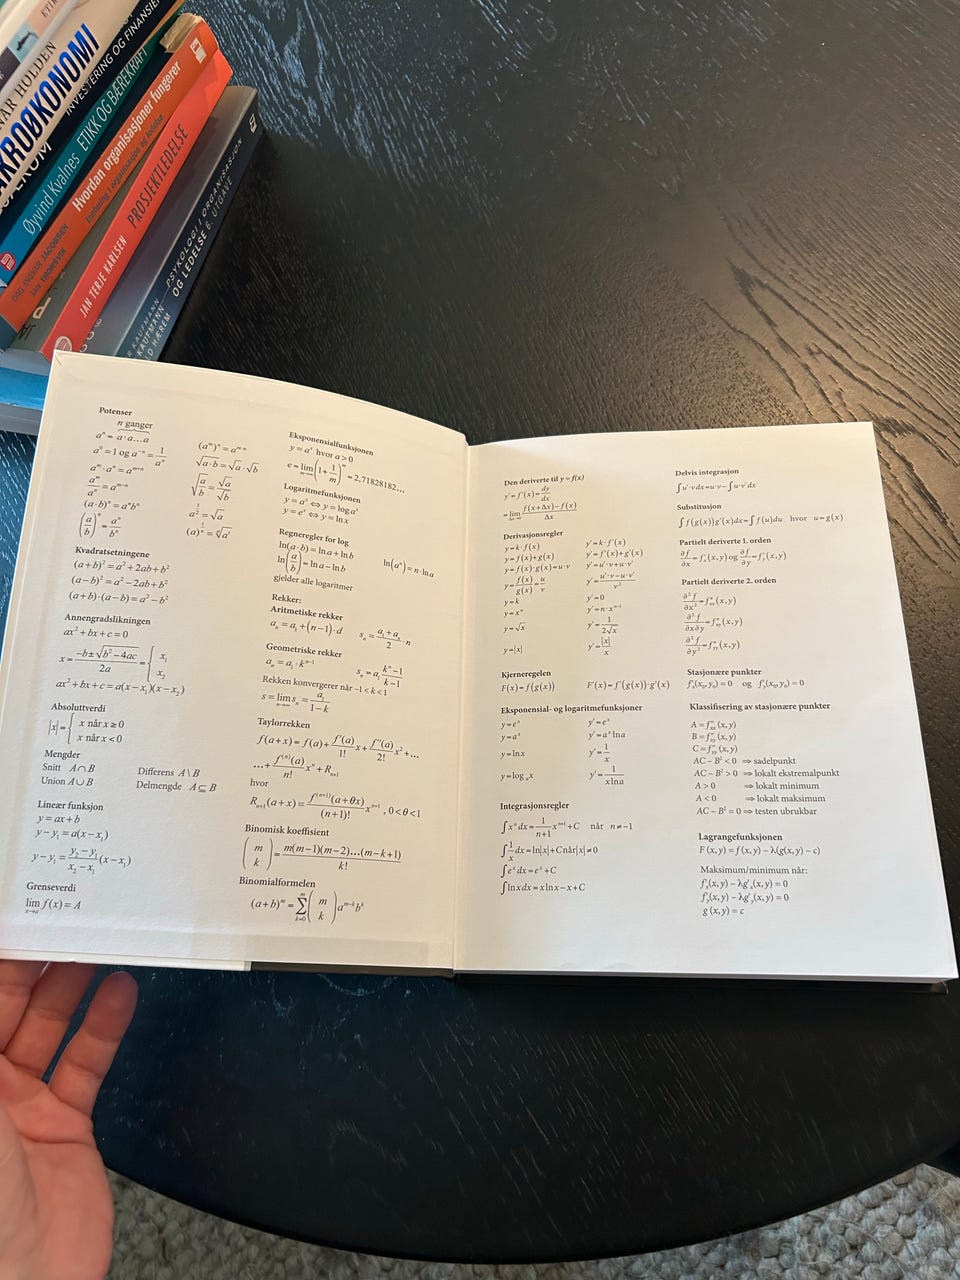 NAR HOLDEN
KROØKONOMI
INVESTERING OG FINANSIERING
Øyvind Kvalnes ETIKK OG BÆREKRAFT
Hvordan organisasjoner fungerer
Innføring i organisasjon og ledelse
DAG INGVAR JACOBSEN
JAN THORSVIK
JAN TERJE KARLSEN PROSJEKTLEDELSE
PSYKOLOGI I ORGANISASJON
OG LEDELSE 6. UTGAVE
R KAUFMANN
KAUFMANN
D HÆREM
Potenser
n ganger
aⁿ = a·a…a
a⁰ = 1 og a⁻ⁿ = 1/aⁿ
aᵐ·aⁿ = aᵐ⁺ⁿ
aᵐ/aⁿ = aᵐ⁻ⁿ
(a·b)ⁿ = aⁿbⁿ
(a/b)ⁿ = aⁿ/bⁿ
(aᵐ)ⁿ = aᵐ·ⁿ
√(a·b) = √a·√b
√(a/b) = √a/√b
Kvadratsetningene
(a+b)² = a²+2ab+b²
(a−b)² = a²−2ab+b²
(a+b)·(a−b) = a²−b²
Annengradslikningen
ax²+bx+c = 0
x = (−b±√(b²−4ac))/2a = { x₁ x₂
ax²+bx+c = a(x−x₁)(x−x₂)
Absoluttverdi
|x| = { x når x ≥ 0
x når x < 0
Mengder
Snitt A∩B Differens A\B
Union A∪B Delmengde A⊆B
Lineær funksjon
y = ax+b
y−y₁ = a(x−x₁)
y−y₁ = (y₂−y₁)/(x₂−x₁) (x−x₁)
Grenseverdi
lim x→a f(x) = A
Eksponensialfunksjonen
y = aˣ hvor a > 0
e = lim m→∞ (1+1/m)ᵐ = 2,71828182…
Logaritmefunksjonen
y = aˣ ⇔ y = log aˣ
y = eˣ ⇔ y = ln x
Regneregler for log
ln(a·b) = ln a + ln b
ln(a/b) = ln a − ln b ln(aⁿ) = n·ln a
gjelder alle logaritmer
Rekker:
Aritmetiske rekker
aₙ = a₁+(n−1)·d sₙ = (a₁+aₙ)/2 ·n
Geometriske rekker
aₙ = a₁·kⁿ⁻¹ sₙ = a₁ (kⁿ−1)/(k−1)
Rekken konvergerer når −1 < k < 1
s = lim n→∞ sₙ = a₁/(1−k)
Taylorrekken
f(a+x) = f(a) + f′(a)/1! x + f″(a)/2! x² + …
… + f⁽ⁿ⁾(a)/n! xⁿ + Rₙ₊₁
hvor
Rₙ₊₁(a+x) = f⁽ⁿ⁺¹⁾(a+θx)/(n+1)! xⁿ⁺¹ , 0 < θ < 1
Binomisk koeffisient
(m k) = m(m−1)(m−2)…(m−k+1)/k!
Binomialformelen
(a+b)ᵐ = Σ k=0 m (m k) aᵐ⁻ᵏbᵏ
Den deriverte til y = f(x)
y′ = f′(x) = dy/dx
= lim Δx→0 (f(x+Δx)−f(x))/Δx
Derivasjonsregler
y = k·f(x) y′ = k·f′(x)
y = f(x)+g(x) y′ = f′(x)+g′(x)
y = f(x)·g(x) = u·v y′ = u′·v+u·v′
y = f(x)/g(x) = u/v y′ = (u′·v−u·v′)/v²
y = k y′ = 0
y = xⁿ y′ = n·xⁿ⁻¹
y = √x y′ = 1/(2√x)
y = |x| y′ = |x|/x
Kjerneregelen
F(x) = f(g(x)) F′(x) = f′(g(x))·g′(x)
Eksponensial- og logaritmefunksjoner
y = eˣ y′ = eˣ
y = aˣ y′ = aˣ ln a
y = ln x y′ = 1/x
y = logₐx y′ = 1/(x ln a)
Integrasjonsregler
∫xⁿdx = 1/(n+1) xⁿ⁺¹+C når n ≠ −1
∫1/x dx = ln|x|+C når |x| ≠ 0
∫eˣdx = eˣ+C
∫ln x dx = x ln x−x+C
Delvis integrasjon
∫u′·v dx = u·v−∫u·v′dx
Substitusjon
∫f(g(x))g′(x)dx = ∫f(u)du hvor u = g(x)
Partielt deriverte 1. orden
∂f/∂x = f′ₓ(x,y) og ∂f/∂y = f′ᵧ(x,y)
Partielt deriverte 2. orden
∂²f/∂x² = f″ₓₓ(x,y)
∂²f/∂x∂y = f″ₓᵧ(x,y)
∂²f/∂y² = f″ᵧᵧ(x,y)
Stasjonære punkter
f′ₓ(x₀,y₀) = 0 og f′ᵧ(x₀,y₀) = 0
Klassifisering av stasjonære punkter
A = f″ₓₓ(x,y)
B = f″ₓᵧ(x,y)
C = f″ᵧᵧ(x,y)
AC−B² < 0 ⇒ sadelpunkt
AC−B² > 0 ⇒ lokalt ekstremalpunkt
A > 0 ⇒ lokalt minimum
A < 0 ⇒ lokalt maksimum
AC−B² = 0 ⇒ testen ubrukbar
Lagrangefunksjonen
F(x,y) = f(x,y)−λ(g(x,y)−c)
Maksimum/minimum når:
f′ₓ(x,y)−λg′ₓ(x,y) = 0
f′ᵧ(x,y)−λg′ᵧ(x,y) = 0
g(x,y) = c